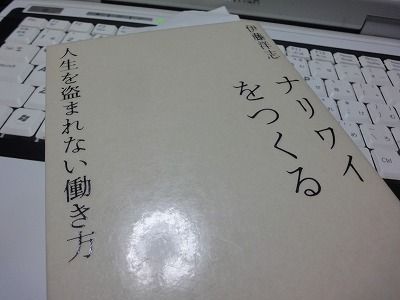 伊藤洋志
ナリワイ
をつくる
人生を盗まれない働き方
Ctrl